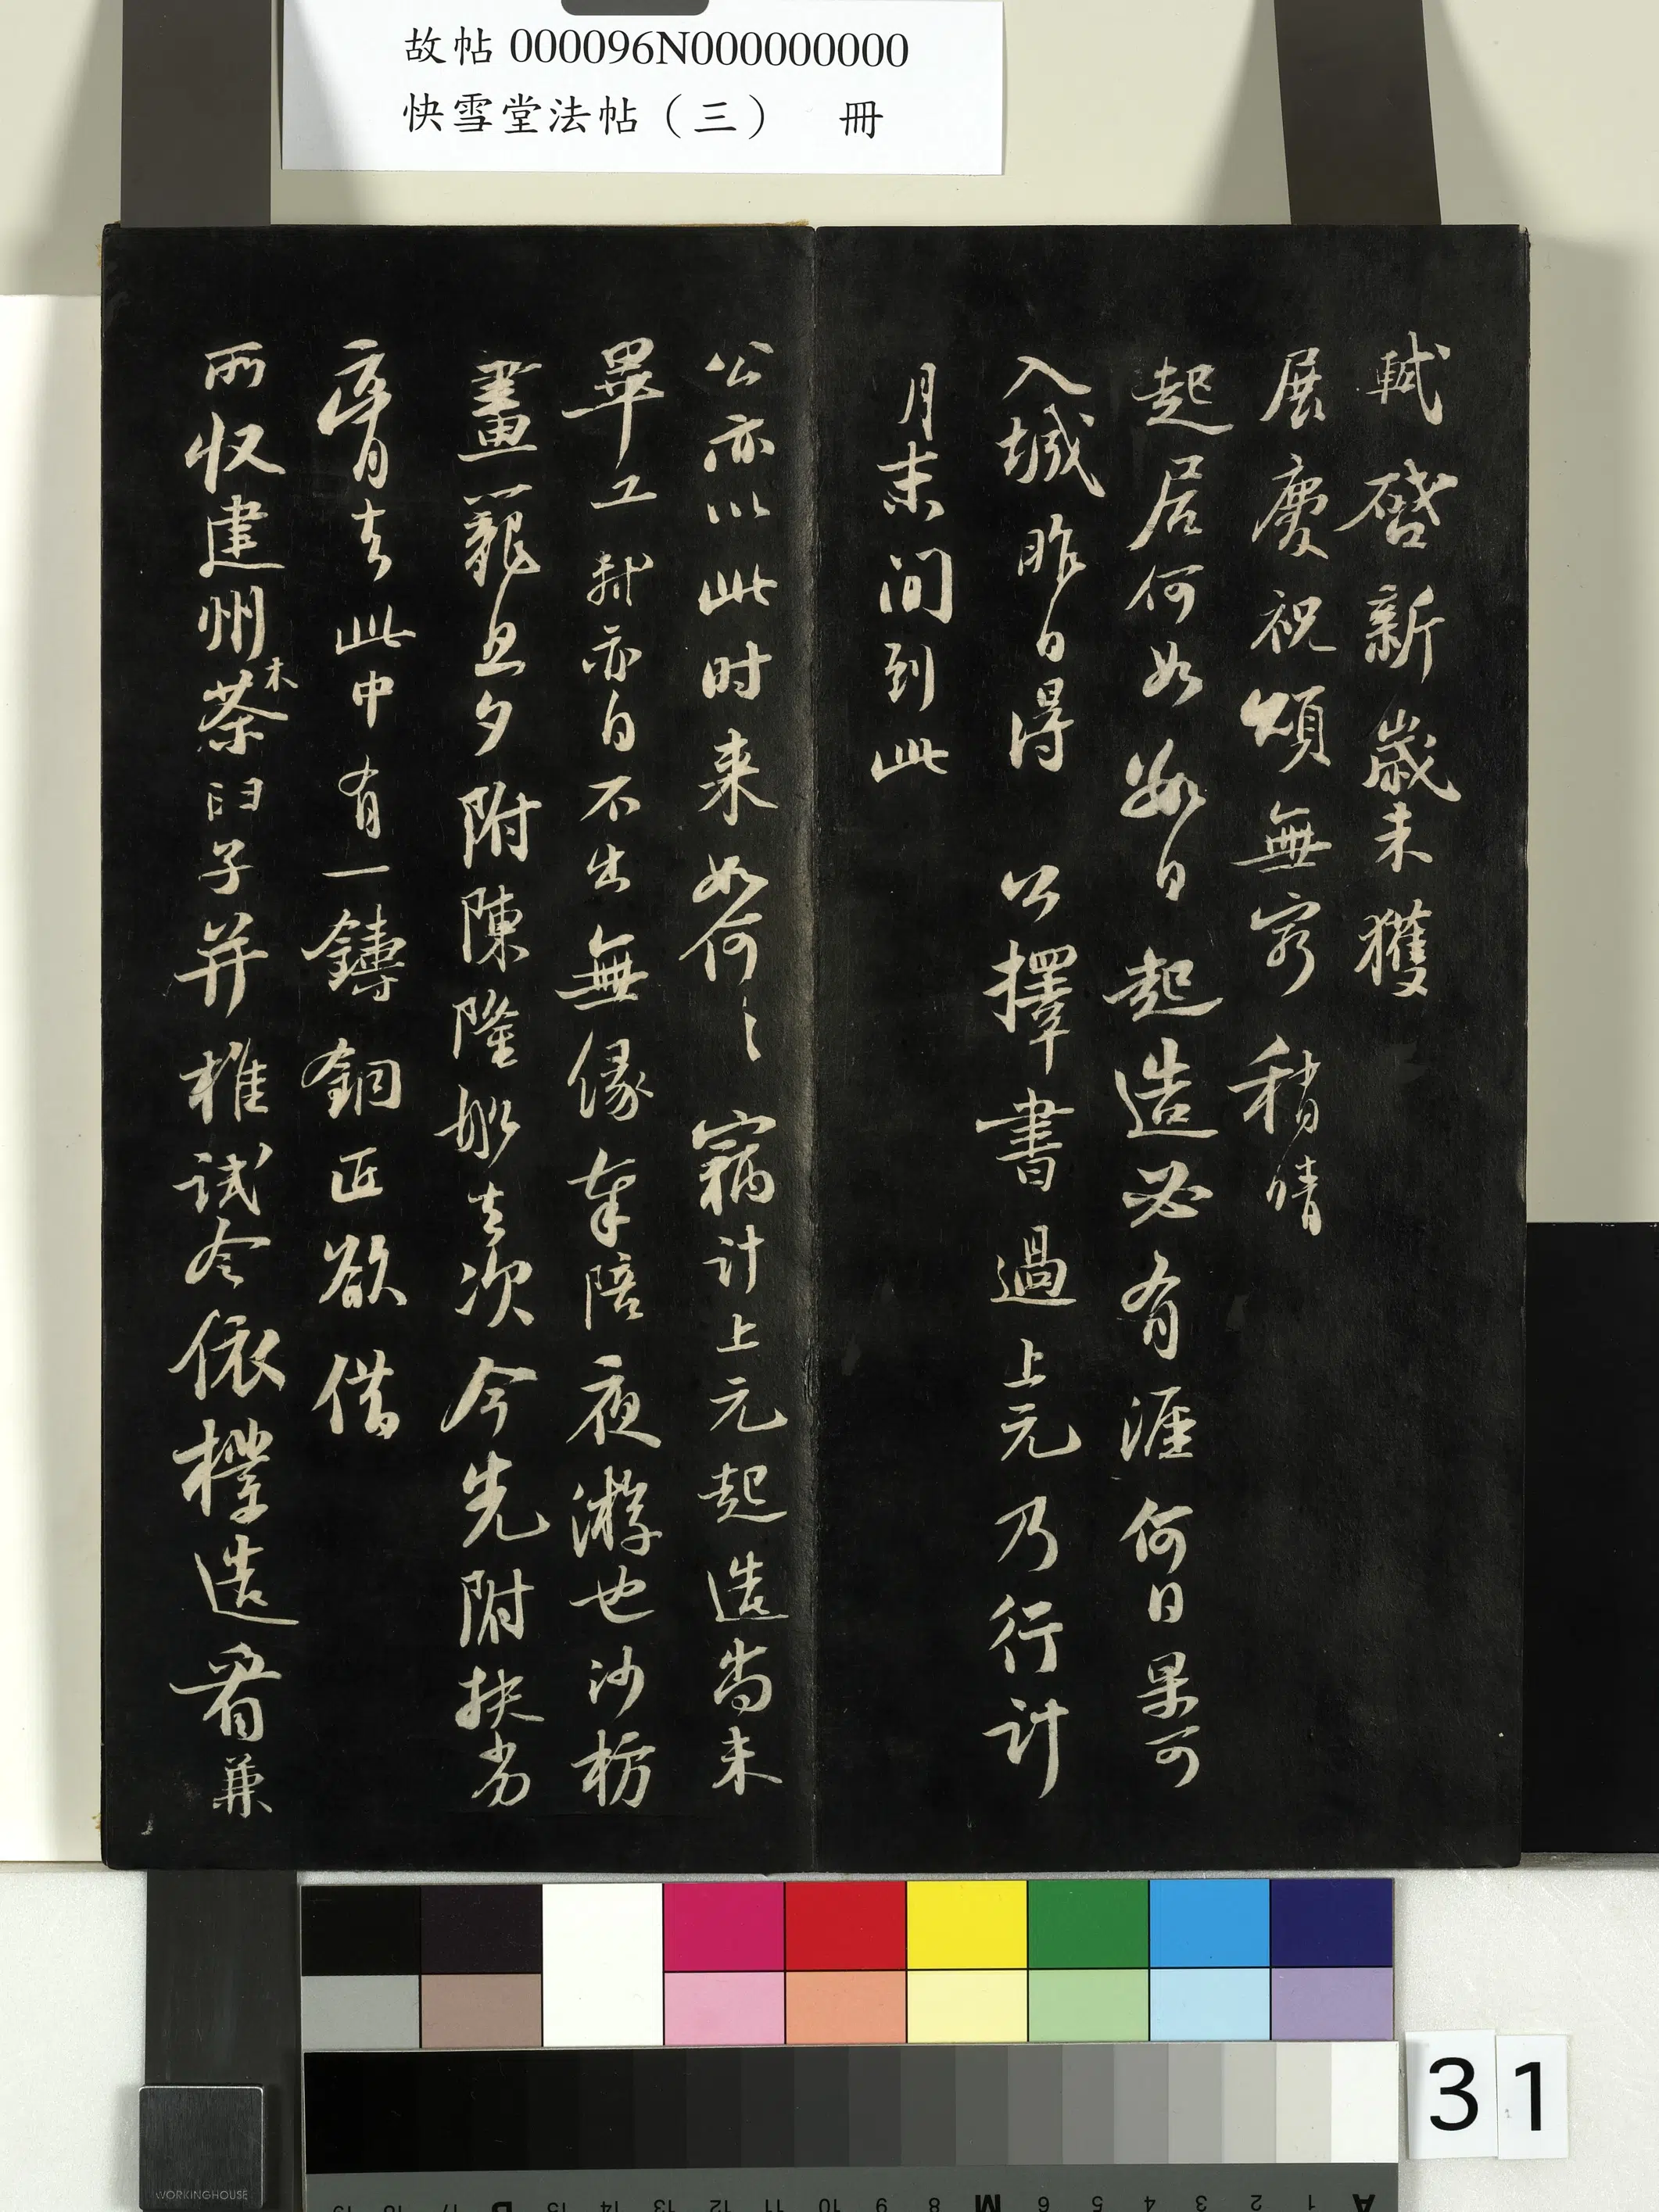 故帖 000096N000000000
快雪堂法帖（三） 冊
軾啓新歲未獲
展慶祝頌無窮稍晴
起居何如數日起造必有涯何日果可
入城昨日得 公擇書過上元乃行計
月末間到此
公亦以此时来如何〻竊计上元起造尚未
畢工軾亦自不出無緣奉陪夜遊也沙枋
畫籠旦夕附陳隆船去次今先附扶劣
膏去此中有一鑄銅匠欲借
所收建州木茶臼子并椎试令依樣造看兼
31
WORKINGHOUSE